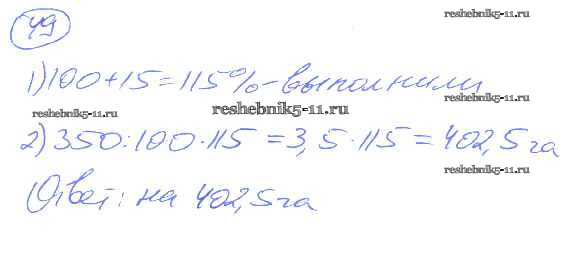 49
reshebnik5-11.ru.
reshebnik5-11.ru
1) 100 + 15 = 115% - выполнили
reshebnik5-11.ru
reshebnik5-11.ru
reshebnik5-11.ru
2) 350 : 100 · 115 = 3,5 · 115 = 402,5 га
reshebnik5-11.ru
Ответ: на 402,5 га
reshebnik5-11.ru